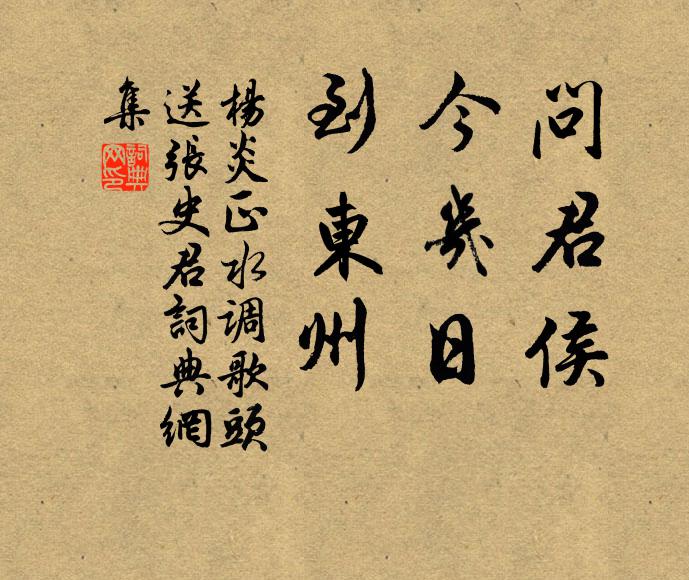 問君侯
今幾日
到東州
楊炎正水调歌頭
送張史君詞典網
集
詞典網印